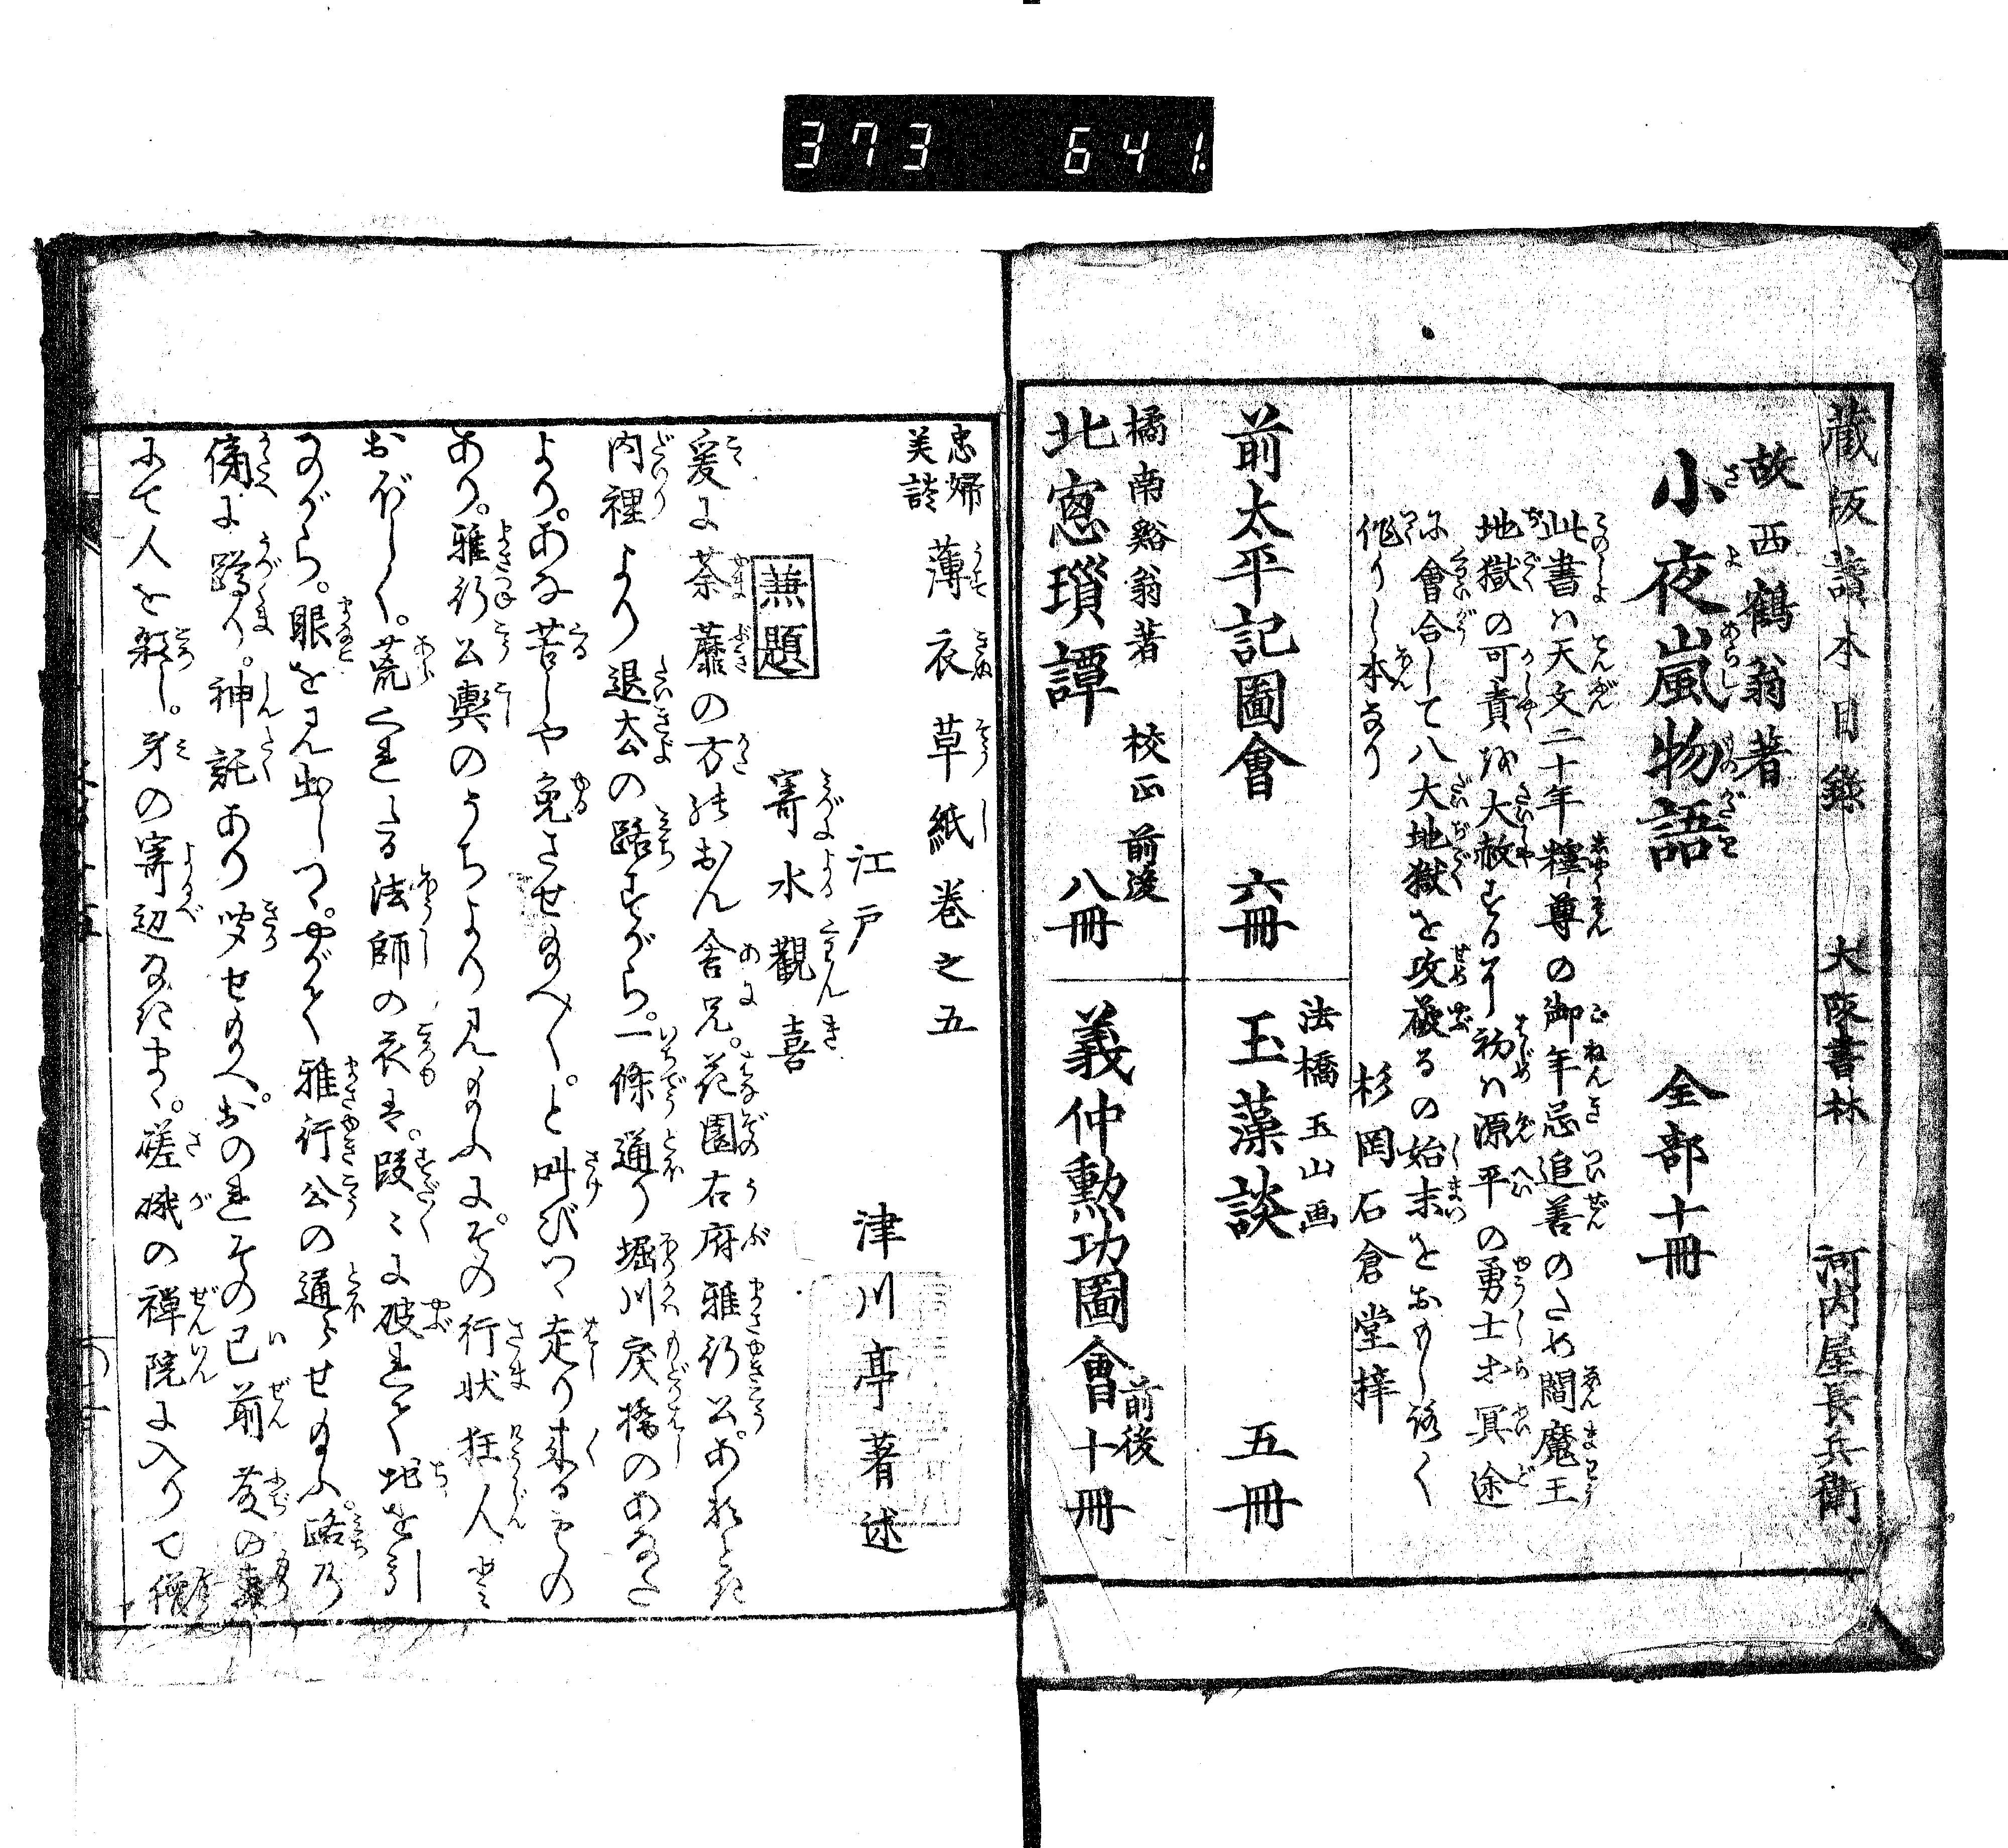 373 641.
蔵版讀本目録 大阪書林 河内屋長兵衛
故西鶴翁著
小夜嵐物語 全部十冊
此書ハ天文二十年釋尊の御年忌追善のため閻魔王
地獄の可責を大赦する
初ハ源平の勇士冥途
に會合して八大地獄を攻破るの始末をおもしろく
作りし本なり 杉岡石倉堂梓
前太平記圖會 六冊
法橋玉山画
玉藻談 五冊
橘南谿翁著 校正 前後
北窓瑣譚 八冊
義仲勲功圖會 前後 十冊
忠婦
美談
薄衣草紙巻之五
江戸 津川亭著述
無題 寄水觀喜
爰に荼蘼の方のおん舎兄。花園右府雅行公。あるとき
内裡より退出の路すがら。一條通り堀川戻橋のあなた
より。あな苦しや免させ給へ〳〵。と叫びつゝ走り来るもの
あり。雅行公輿のうちより見給ふに。その行状狂人と
おぼしく。荒くれたる法師の衣は。段〻に破れて地を引
ながら。眼を見出しつゝ。やがて雅行公の通らせ給ふ路の
傍に蹲り。神託あり聞せ給へ。おのれその已前
にて人を殺し。身の寄辺なきまゝ。嵯峨の禅院に入りて僧